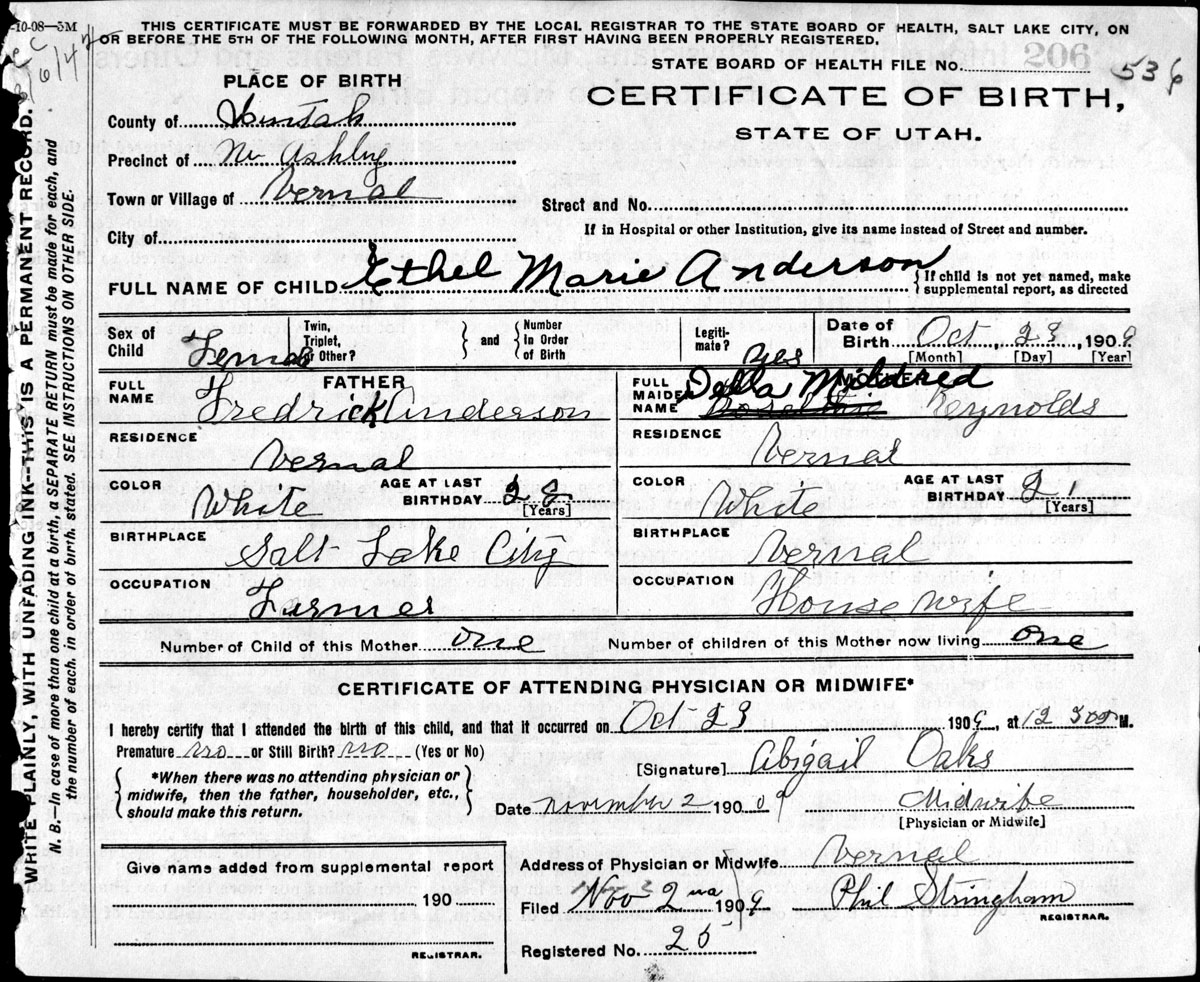 -10-08—5M
THIS CERTIFICATE MUST BE FORWARDED BY THE LOCAL REGISTRAR TO THE STATE BOARD OF HEALTH, SALT LAKE CITY, ON
OR BEFORE THE 5TH OF THE FOLLOWING MONTH, AFTER FIRST HAVING BEEN PROPERLY REGISTERED.
STATE BOARD OF HEALTH FILE NO. 536
PLACE OF BIRTH
CERTIFICATE OF BIRTH,
STATE OF UTAH.
County of Uintah
Precinct of Ashley
Town or Village of Vernal
Street and No.
City of
If in Hospital or other Institution, give its name instead of Street and number.
FULL NAME OF CHILD Ethel Marie Anderson
{If child is not yet named, make
supplemental report, as directed
Sex of Child Female
Twin, Triplet, or Other?
} and {
Number In Order of Birth
Legiti- mate? yes
Date of Birth Oct 23, 1909
[Month] [Day] [Year]
FATHER
FULL NAME Fredrick Anderson
FULL MAIDEN NAME Della Mildred Reynolds
RESIDENCE Vernal
RESIDENCE Vernal
COLOR White
AGE AT LAST BIRTHDAY 28 [Years]
COLOR White
AGE AT LAST BIRTHDAY 21 [Years]
BIRTHPLACE Salt Lake City
BIRTHPLACE Vernal
OCCUPATION Farmer
OCCUPATION House wife
Number of Child of this Mother one
Number of children of this Mother now living one
CERTIFICATE OF ATTENDING PHYSICIAN OR MIDWIFE*
I hereby certify that I attended the birth of this child, and that it occurred on Oct 23 1909, at 12 30 M.
Premature no or Still Birth? no (Yes or No)
[Signature] Abigail Oaks
{*When there was no attending physician or
midwife, then the father, householder, etc.,
should make this return.}
Date November 2 190 09
Midwife
[Physician or Midwife]
Give name added from supplemental report
190
REGISTRAR.
Address of Physician or Midwife Vernal
Filed Nov 2 1909
Phil Stringham
REGISTRAR.
Registered No. 25
WRITE PLAINLY, WITH UNFADING INK—THIS IS A PERMANENT RECORD.
N. B.—In case of more than one child at a birth, a SEPARATE RETURN must be made for each, and
the number of each, in order of birth, stated. SEE INSTRUCTIONS ON OTHER SIDE.